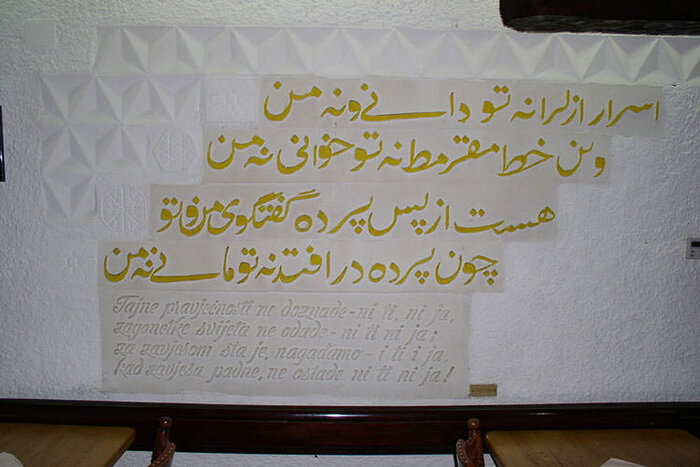 اسرار ازل را نه تو دانی و نه من
وین خط مقرمط نه تو خوانی نه من
هست از پس پرده گفتگوی من و تو
چون پرده در افتد نه تو مانی نه من
Tajne pravječnosti ne doznade - ni ti, ni ja,
zagonetke svijeta ne odade - ni ti ni ja;
za zavjesom šta je, nagađamo - i ti i ja,
kad zavjesa padne, ne ostade ni ti ni ja!